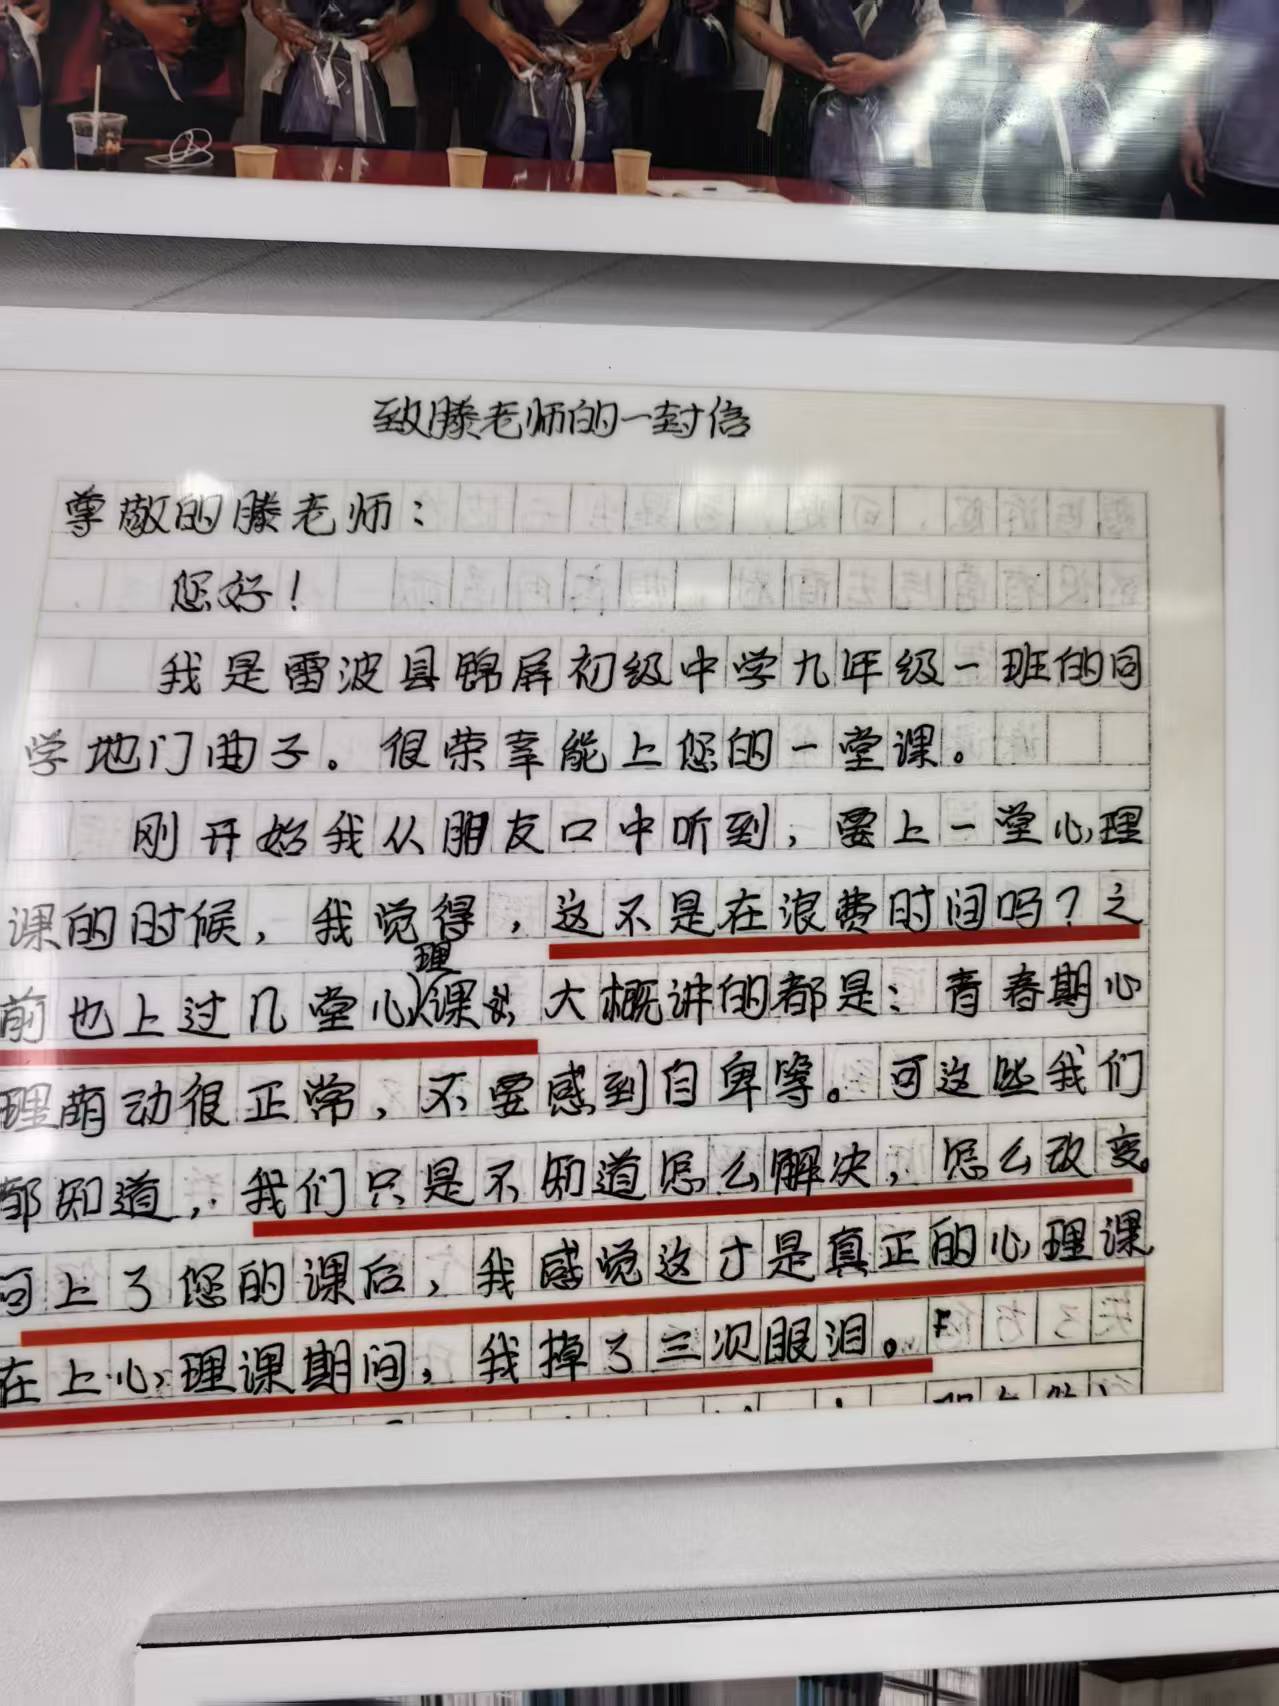 致滕老师的一封信
尊敬的滕老师：
您好！
我是雷波县锦屏初级中学九年级一班的同
学地门曲子。很荣幸能上您的一堂课。
刚开始我从朋友口中听到，要上一堂心理
课的时候，我觉得，这不是在浪费时间吗？之
前也上过几堂心理课，大概讲的都是：青春期心
理萌动很正常，不要感到自卑等。可这些我们
都知道，我们只是不知道怎么解决，怎么改变。
可上了您的课后，我感觉这才是真正的心理课
在上心理课期间，我掉了三次眼泪。